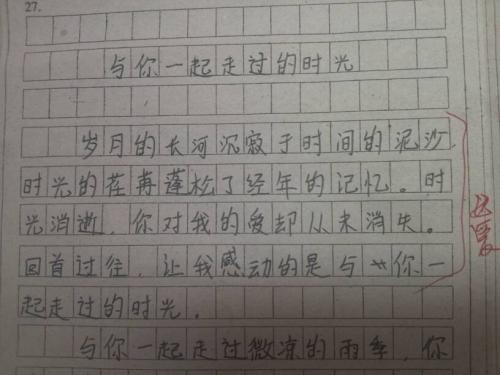 27.
与你一起走过的时光
岁月的长河沉寂于时间的泥沙,
时光的荏苒蓬松了经年的记忆。时
光消逝,你对我的爱却从未消失。
回首过往,让我感动的是与你一
起走过的时光。
与你一起走过微凉的雨季,你